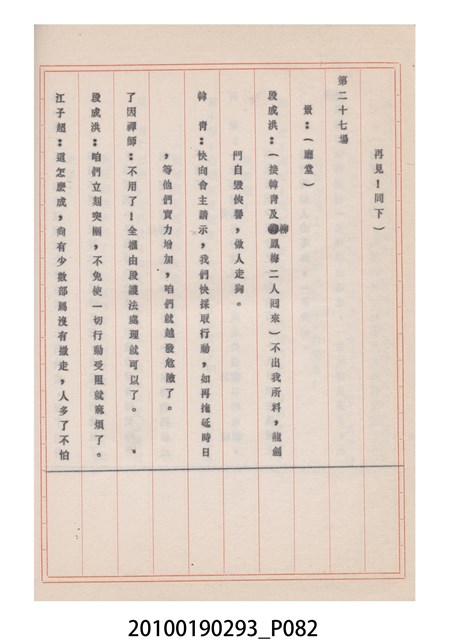 再見!同下)
第二十七場
景:(廳堂)
段成洪:(接韓青及柳鳳梅二人回來)不出我所料,龍劍
門自毀俠譽,做人走狗。
韓 青:快向會主請示,我們快採取行動,如再拖延時日
,等他們實力增加,咱們就越發危險了。
了因禪師:不用了!全權由段護法處理就可以了。、
段成洪:咱們立刻突圍,不免使一切行動受阻就麻煩了。
江子超:這怎麼成,尚有少數部馬沒有撤走,人多了不怕
20100190293_P082